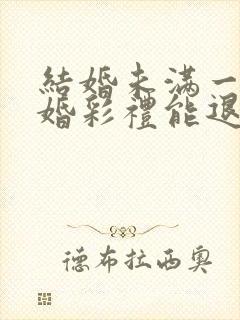 結婚未滿一
婚彩禮能退
德布拉西奧